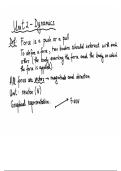 Unit 2 - Dynamics
Def: Force is a push or a pull
To define a force, two bodies should interact with each
other (the body exerting the force and the body on which
the force is applied)
All forces are vectors → magnitude and direction
Unit: newton (N)
Graphical representation:
Force